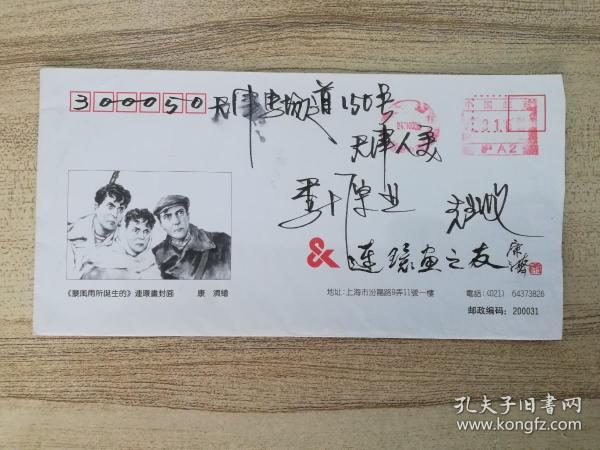 300050 天津马场道150号
天津人美
中国邮政
沪A2
& 连环画之友 康济
《暴風雨所誕生的》連環畫封面 康濟繪
地址:上海市汾陽路9弄11號一樓 電話:(021) 64373826
邮政编码:200031
孔夫子旧书网
www.kongfz.com